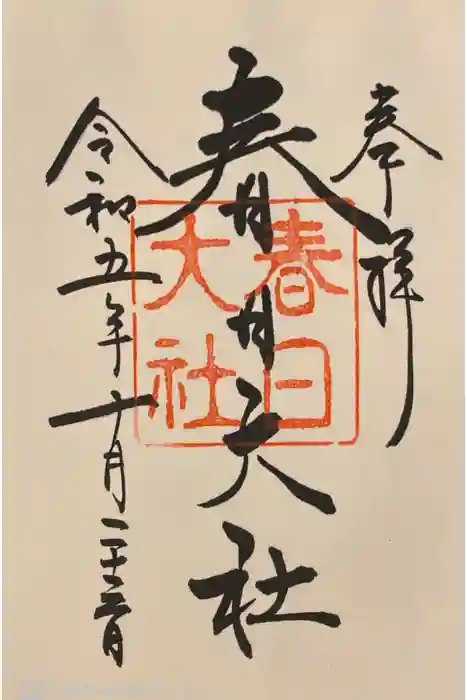 奉拝
春日大社
春日
大社
令和五年十月二十三日